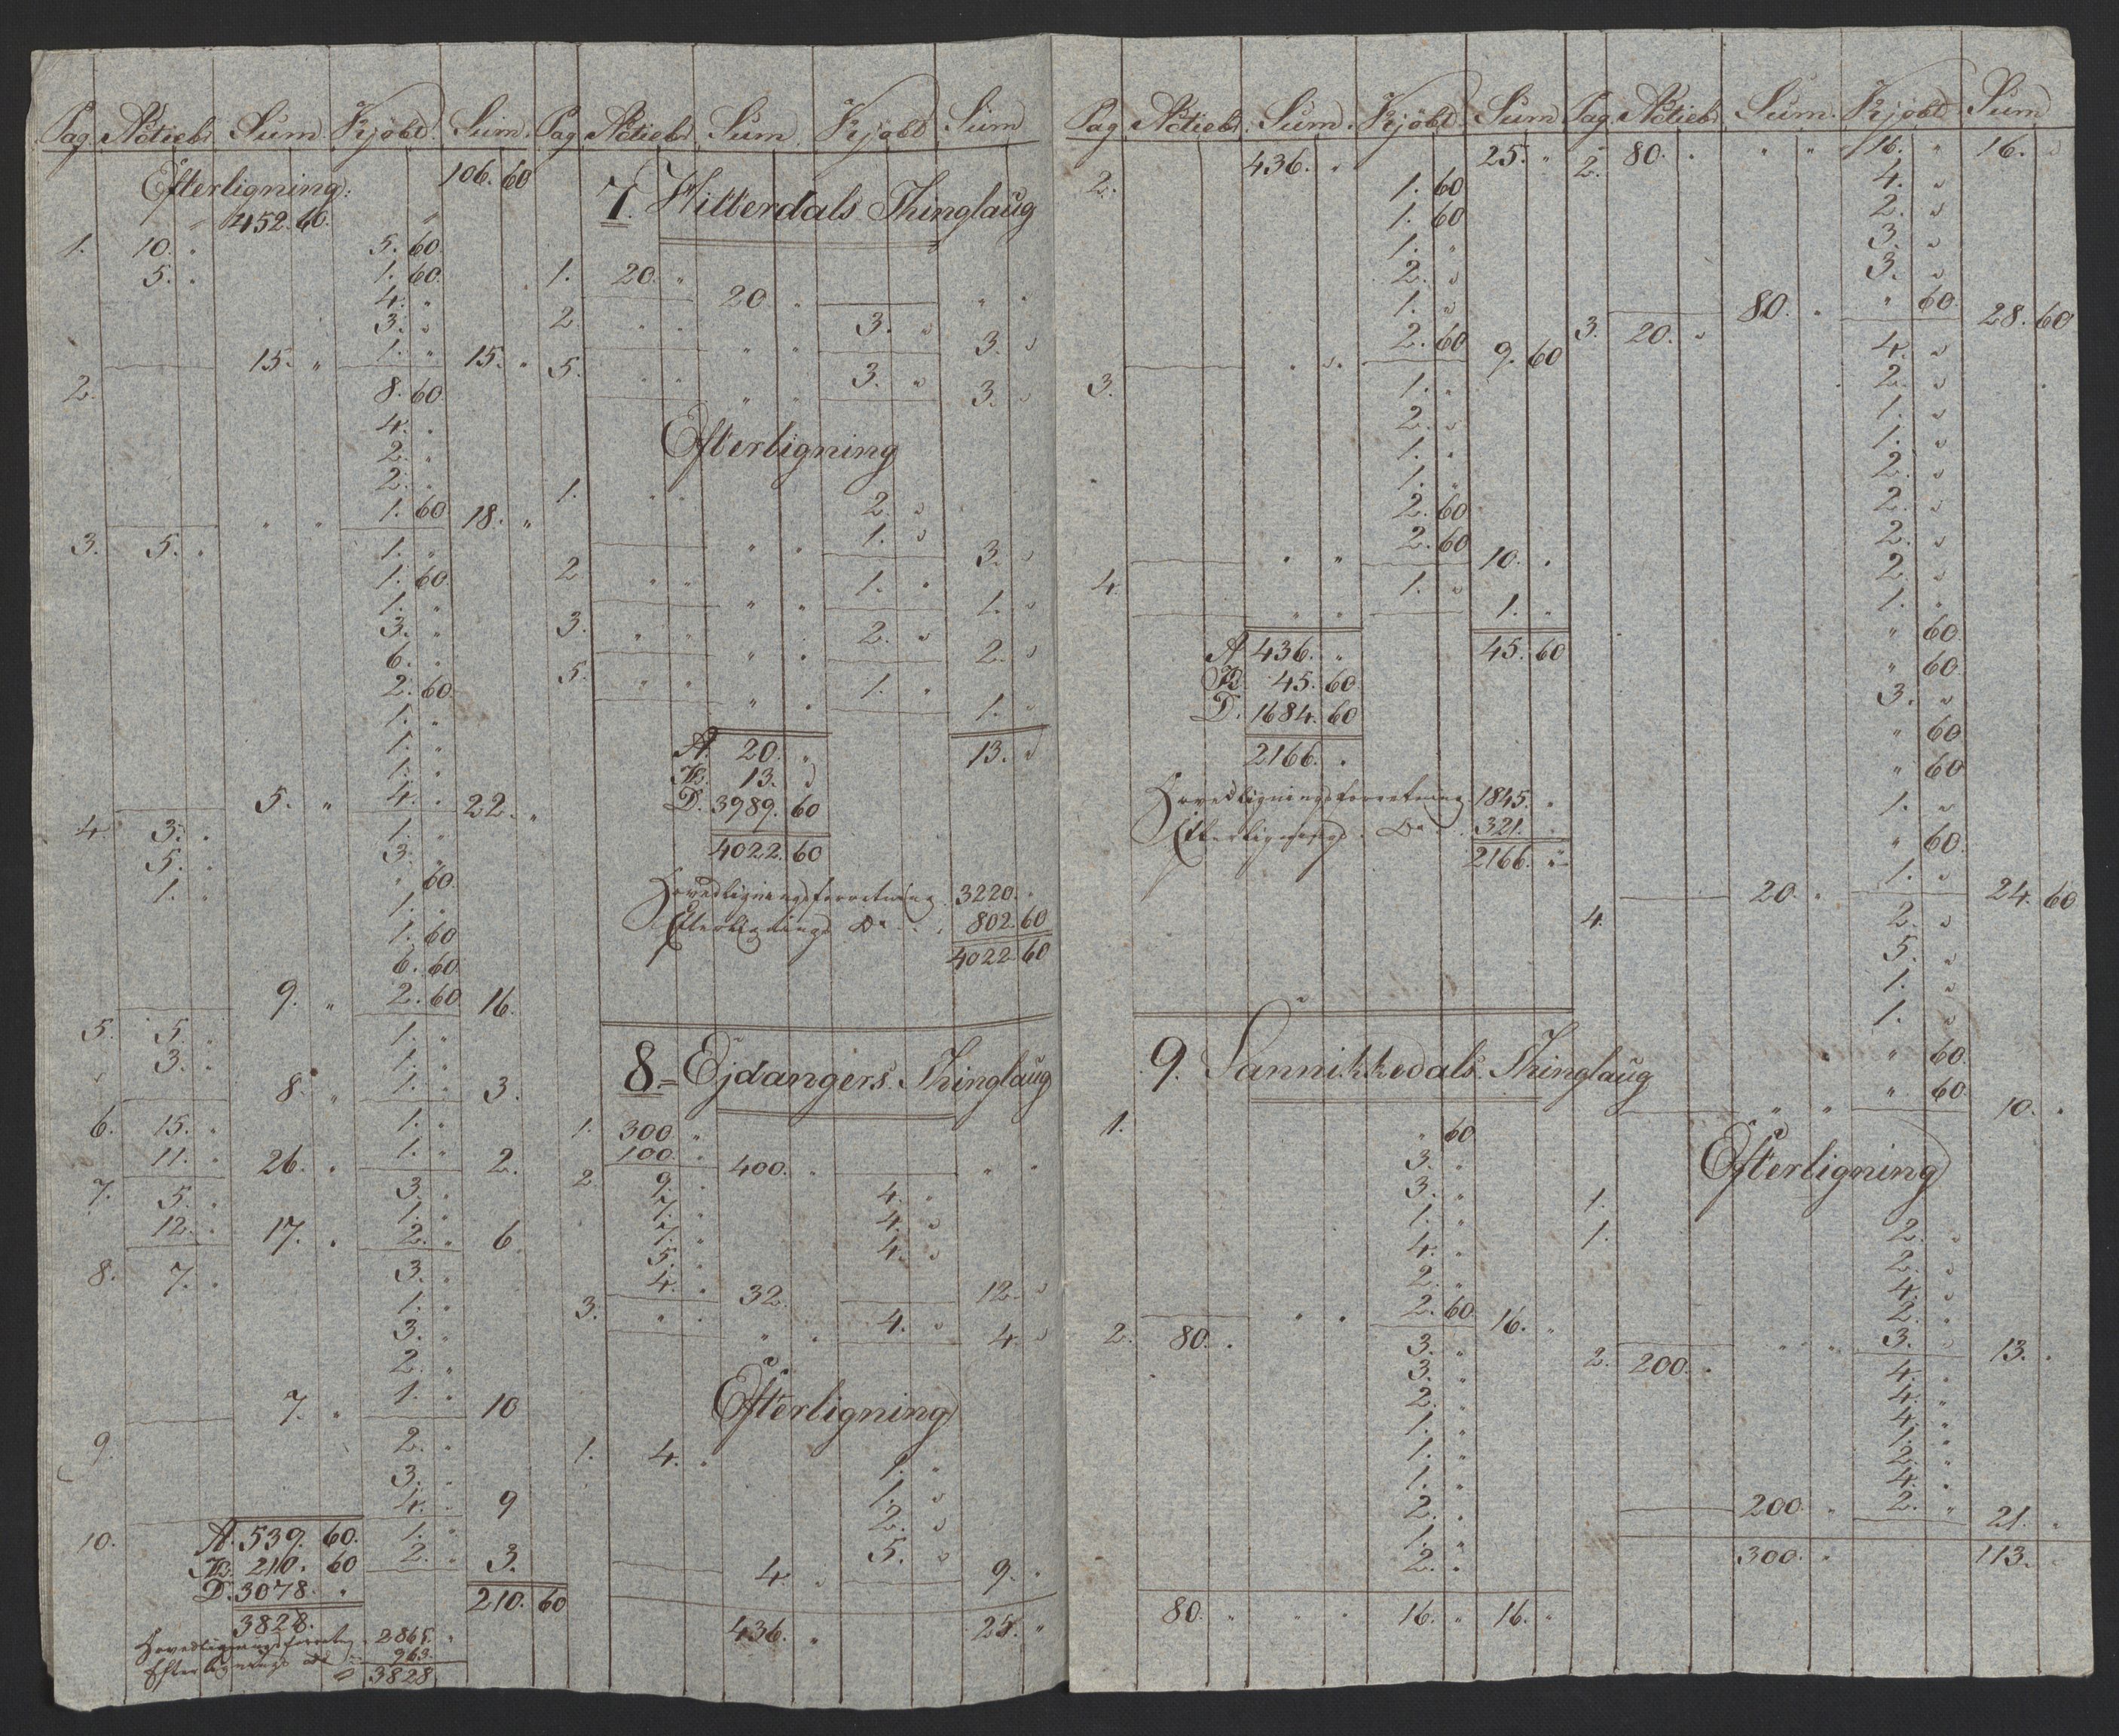 Pag. Actiebr. Sum. Kjøbd. Sum.
Efterligning. 106. 60
" 452. 60. "
1. 10. " 5. 60.
5. " 1. 60.
4. "
3. "
15. " 1. " 15. "
2. 8. 60
4. "
2. "
2. "
" " 1. 60 18. "
3. 5. " 1. "
1. 60.
1. "
3. "
6. "
2. 60
1. "
1. "
1. "
5. " 4. " 22. "
4. 3. " 1. "
5. " 3. "
1. " " 60.
1. "
1. 60
6. 60
9. " 2. 60 16.
5. 5. " 1. "
3. " 1. "
8. " 1. " 3.
6. 15. " 1. "
11. " 26. " 1. " 2.
7. 5. " 3. "
12. " 17. " 1. "
2. " 6.
8. 7. " 3. "
1. "
3. "
2. "
7. " 1. " 10
9. 2. "
3. "
4. " 9
10. A. 539. 60. 1. "
B. 210. 60 2. " 3.
D. 3078. " 210. 60
3828.
Hovedlignings forretng. 2865. "
Efterlignings do 963.
3828
Pag. Actiebr. Sum. Kjøbd. Sum.
7. Hitterdals Thinglaug
1. 20. " 20 " " "
2 " " " " 3. " 3. "
5. " " " " 3. " 3. "
Efterligning
1. " " 2. "
" " 1. " 3. "
2 " " " " 1. " 1. "
3. " " " " 2. " 2. "
5. " " " " 1. " 1. "
A. 20. " 13. "
B. 13. "
D. 3989. 60
4022. 60
Hovedligningsforretning. 3220. "
Efterlignings Do . . 802. 60
4022. 60
8. Ejdangers Thinglaug
1. 300 "
100. " 400. " " "
2 9. " 4. "
7. " 4. "
7. " 4. "
5. "
4. " 32. 12. "
3. " " " " 4. " 4. "
Efterligning
1. 4. " 1. "
1. "
2. "
4. " 5. " 9. "
436. " 25. "
Pag. Actiebr. Sum. Kjøbd. Sum.
436. " 25. "
2. 1. 60
1. 60
1. "
2. "
1. "
" " 2. 60 9. 60
3. 1. "
2. "
1. "
1. "
2. 60
" " 2. 60 10. "
4. " " 1. " 1. "
A. 436. " 45. 60
B. 45. 60
D. 1684. 60
2166. "
Hovedligningsforretning 1845. "
Efterlignings . Do . . 321. "
2166. "
9. Sannikkedals Thinglaug
1. " 60
3. "
3. "
1. "
4. "
2. "
" " 2. 60 16. "
2. 80. " 3. "
3. "
2. "
1. "
1. "
1. "
2. "
1. "
2. "
80. " " " 16. " 16. "
Pag. Actiebr. Sum. Kjøbd. Sum
2. 80. " " " 16. " 16. "
4. "
2. "
3. "
3. "
80. " " 60 28. 60
3. 20. " 4. "
2. "
1. "
1. "
2. "
2. "
2. "
2. "
1. "
" 60.
" 60.
3. "
" 60
" 60
1. "
" 60.
20. " 1. " 24. 60
4. 2. "
5. "
1. "
1. "
" 60.
" " " 60. 10. "
Efterligning
1.
1. 2. "
2. "
4. "
2. "
" " 3. " 13. "
2. 200. " 4. "
4. "
4. "
1. "
2. "
4. "
200. " 2. " 21. "
300. " 113. "